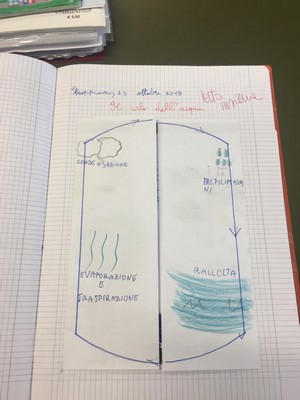 € 5,00
23 ottobre 2018
Il ciclo dell'acqua
CONDENSAZIONE
PRECIPITAZIO
NI
EVAPORAZIONE
E
TRASPIRAZIONE
RACCOLTA